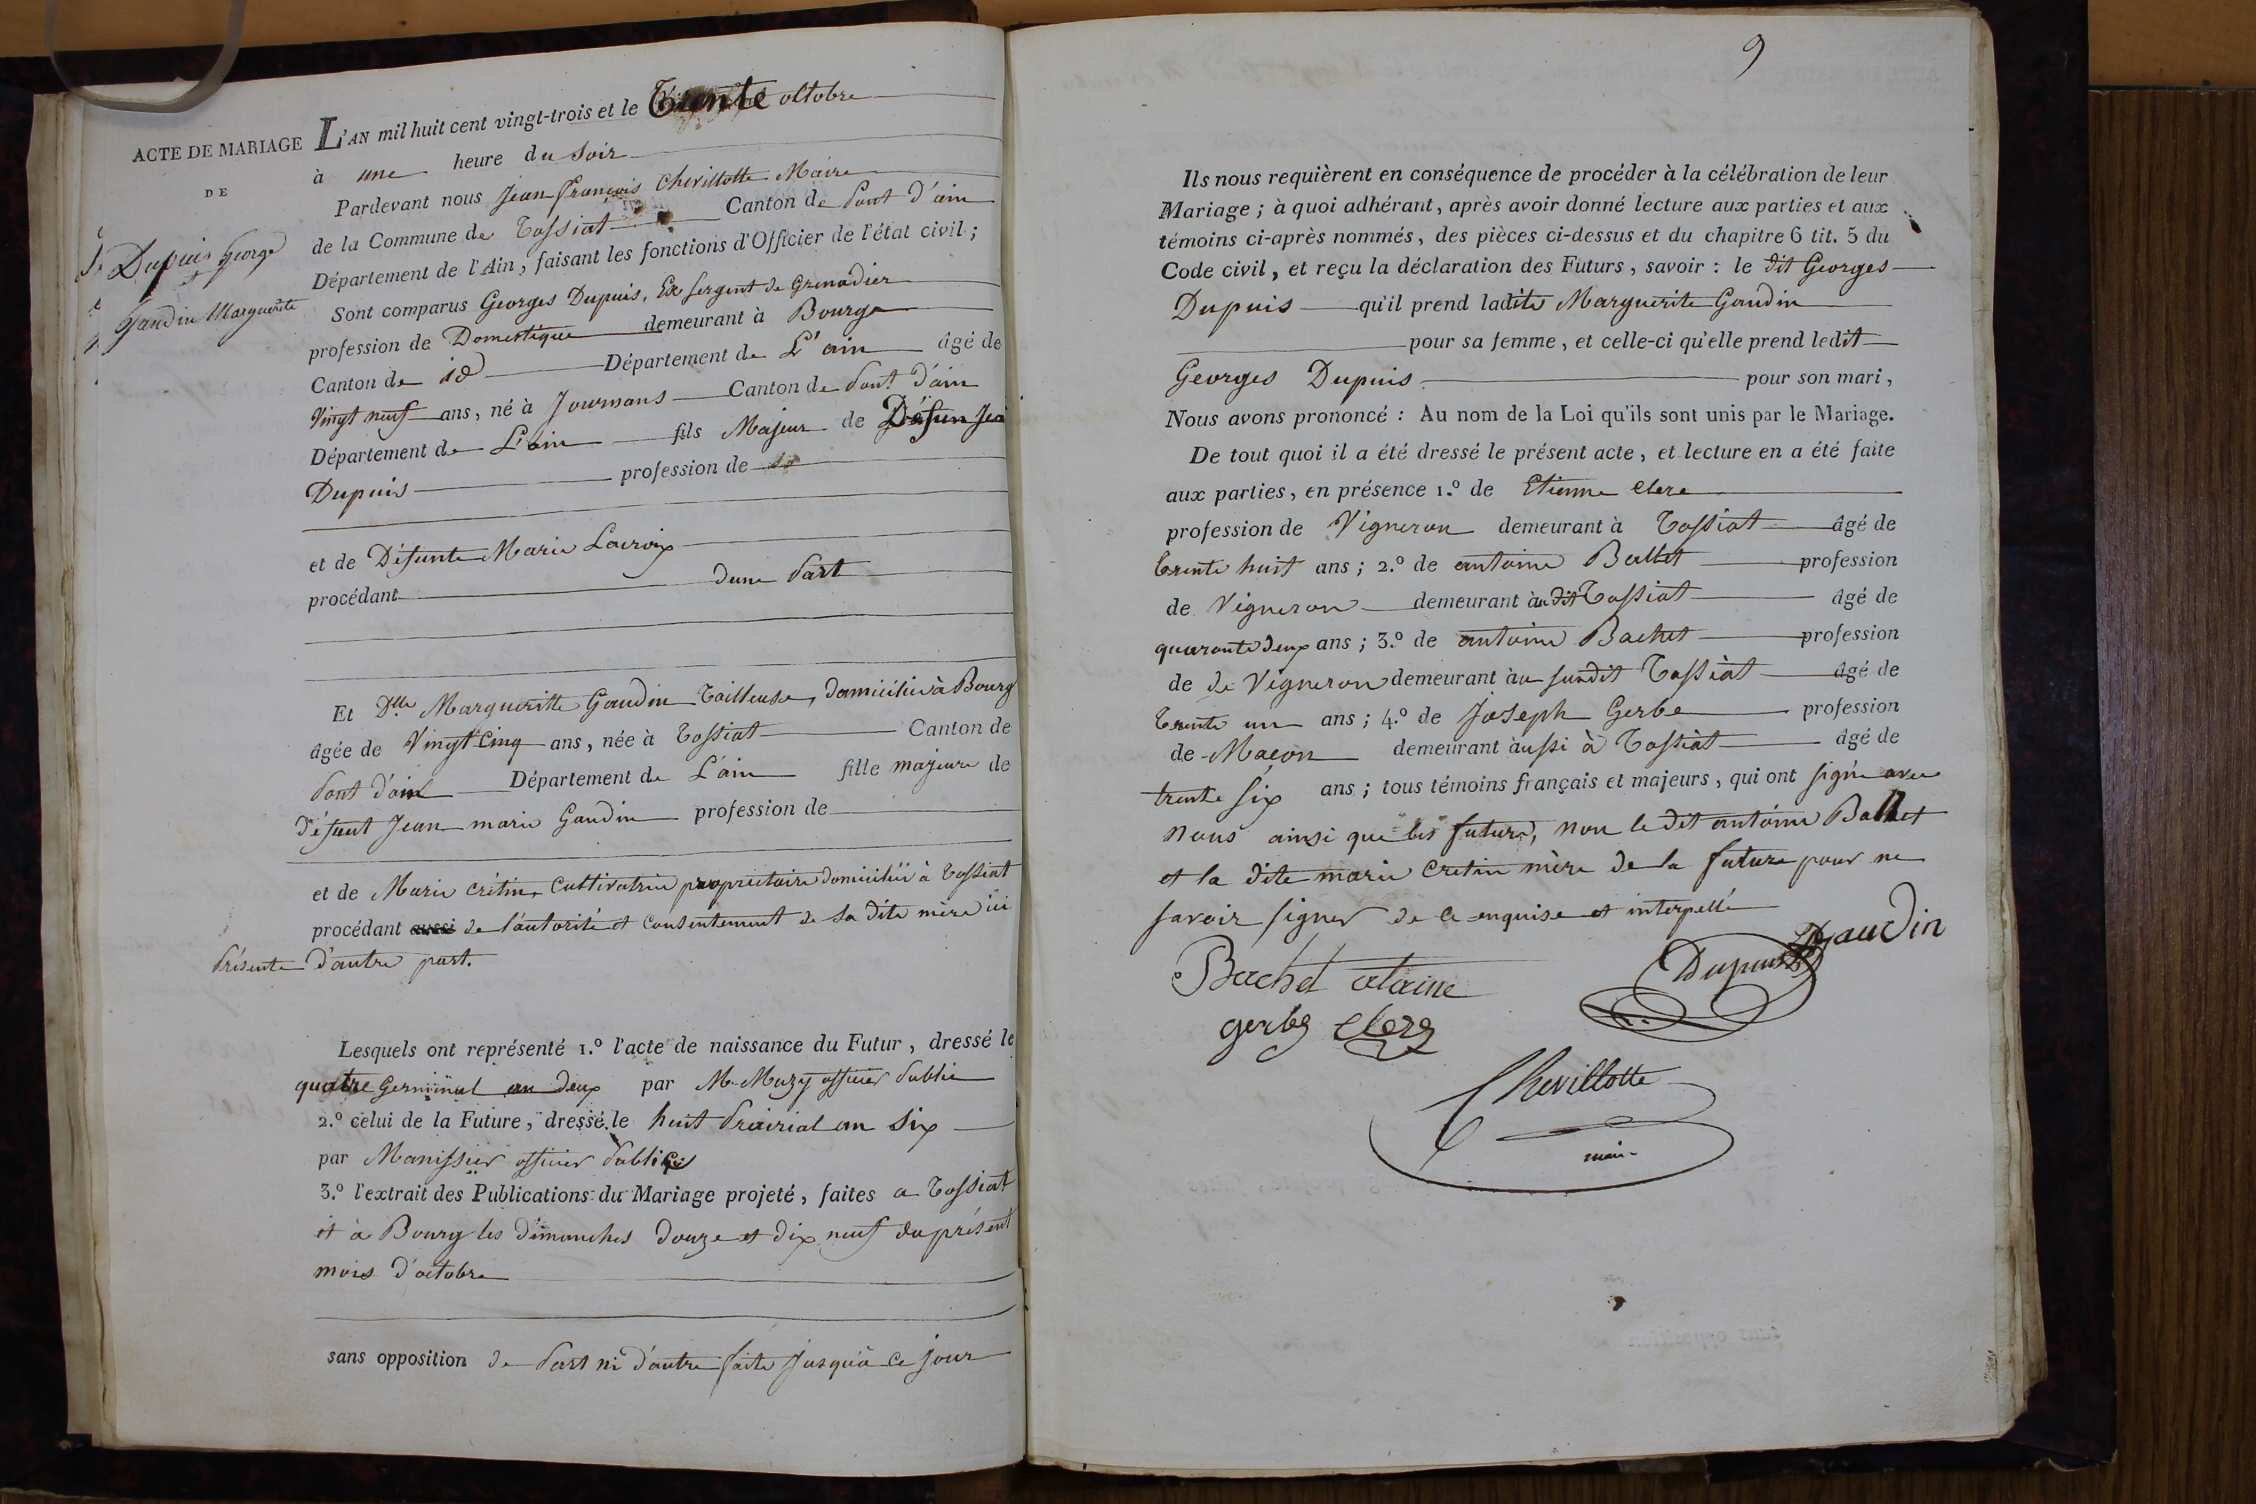 ACTE DE MARIAGE
DE
Sr Dupuis George
et
Gaudin Marguerite
L'AN mil huit cent vingt-trois et le Trente octobre
à une heure du soir
Pardevant nous Jean François Chevillotte Maire
de la Commune de Tossiat Canton de Pont d'ain
Département de l'Ain, faisant les fonctions d'Officier de l'état civil;
Sont comparus Georges Dupuis, Ex sergent de Grenadier
profession de Domestique demeurant à Bourg
Canton de id Département de L'ain âgé de
Vingt neuf ans, né à Journans Canton de Pont d'ain
Département de L'ain fils Majeur de Défun Jea
Dupuis profession de
et de Défunte Marie Lacroix
procédant dune Part
Et Dlle Margueritte Gaudin Tailleuse, domiciliée à Bourg
âgée de Vingt Cinq ans, née à Tossiat Canton de
Pont d'ain Département de L'ain fille majeure de
défunt Jean marie Gaudin profession de
et de Marie crétin, Cultivatrice propriétaire domiciliée à Tossiat
procédant aussi de l'autorité et Consentement de Sa dite mère ici
Présente D'autre part.
Lesquels ont représenté 1.º l'acte de naissance du Futur, dressé le
quatre Germinal an deux par M. Muzy officier Public
2.º celui de la Future, dressé le huit Prairial an Six
par Manissier officier Public
3.º l'extrait des Publications du Mariage projeté, faites a Tossiat
et à Bourg les dimanches douze et dix neuf du présent
mois d'octobre
sans opposition de Part ni d'autre faite Jusqu'a ce jour
9
Ils nous requièrent en conséquence de procéder à la célébration de leur
Mariage; à quoi adhérant, après avoir donné lecture aux parties et aux
témoins ci-après nommés, des pièces ci-dessus et du chapitre 6 tit. 5 du
Code civil, et reçu la déclaration des Futurs, savoir: le dit Georges
Dupuis qu'il prend ladite Marguerite Gaudin
pour sa femme, et celle-ci qu'elle prend ledit
Georges Dupuis pour son mari,
Nous avons prononcé: Au nom de la Loi qu'ils sont unis par le Mariage.
De tout quoi il a été dressé le présent acte, et lecture en a été faite
aux parties, en présence 1.º de Etienne Clere
profession de Vigneron demeurant à Tossiat âgé de
trente huit ans; 2.º de antoine Ballet profession
de Vigneron demeurant à au dit Tossiat âgé de
quarante deux ans; 3.º de antoine Bachet profession
de de Vigneron demeurant à au susdit Tossiat âgé de
trente un ans; 4.º de Joseph Gerbe profession
de Maçon demeurant à aussi à Tossiat âgé de
trente six ans; tous témoins français et majeurs, qui ont signé avec
nous ainsi que les futurs, non le dit antoine Ballet
et la dite marie Cretin mère de la future pour ne
savoir signer de ce enquise et interpellé
Bachet atoine
Dupuis
Gaudin
gerbe Clere
Chevillotte
maire